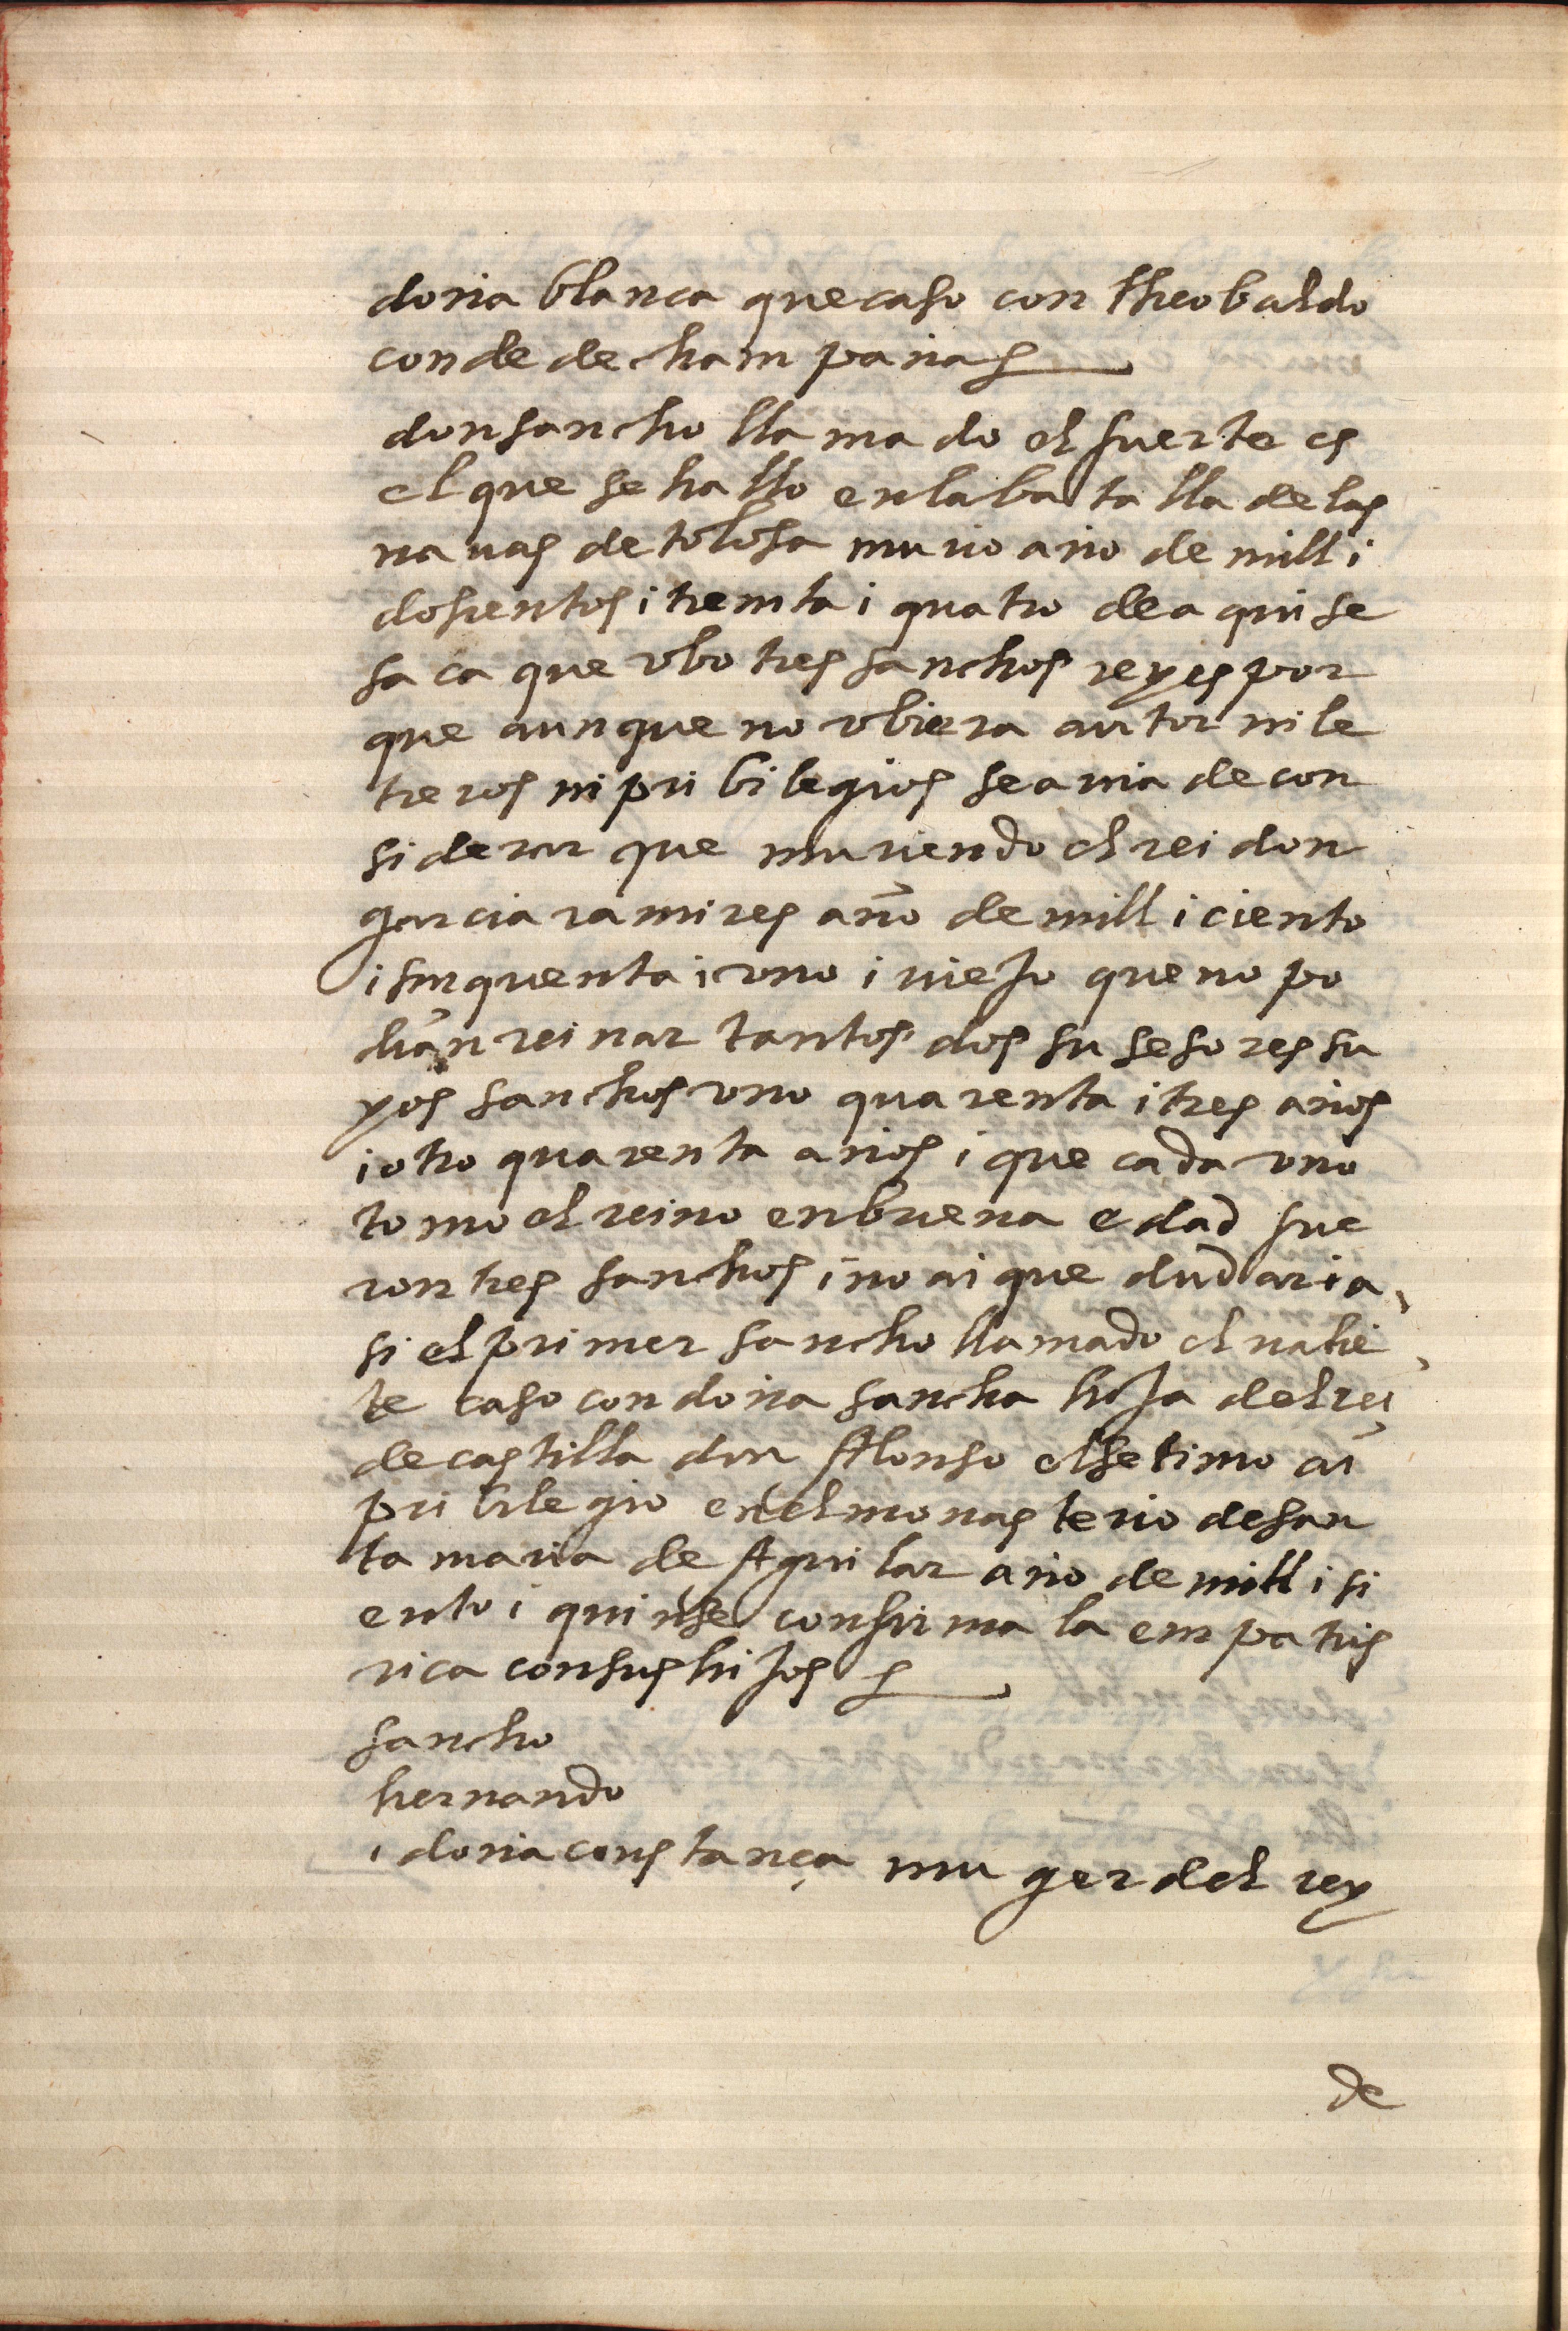 doña blanca que caso con theobaldo
conde de champaña
don sancho llamado el fuerte es
el que se hallo en la batalla de las
nauas de tolosa murio año de mill i
dosientos i treinta i quatro de a qui se
saca que vbo tres sanchos reyes por
que aunque no vbiera autor ni le
treros ni pribilegios se auia de con
siderar que muriendo el rei don
garcia ramires año de mill i ciento
i sinquenta i vno i viejo que no po
dian reinar tantos dos susesores su
yos sanchos vno quarenta i tres años
i otro quarenta años i que cada vno
tomo el reino en buena edad fue
ron tres sanchos i no ai que dudar i a
si el primer sancho llamado el valie
te caso con doña sancha hija del rei
de castilla don Alonso el setimo ai
pribilegio en el monasterio de san
ta maria de Aguilar año de mill i si
ento i quinse confirma la empatris
rica con sus hijos
sancho
hernando
i doña constança muger del rey
de